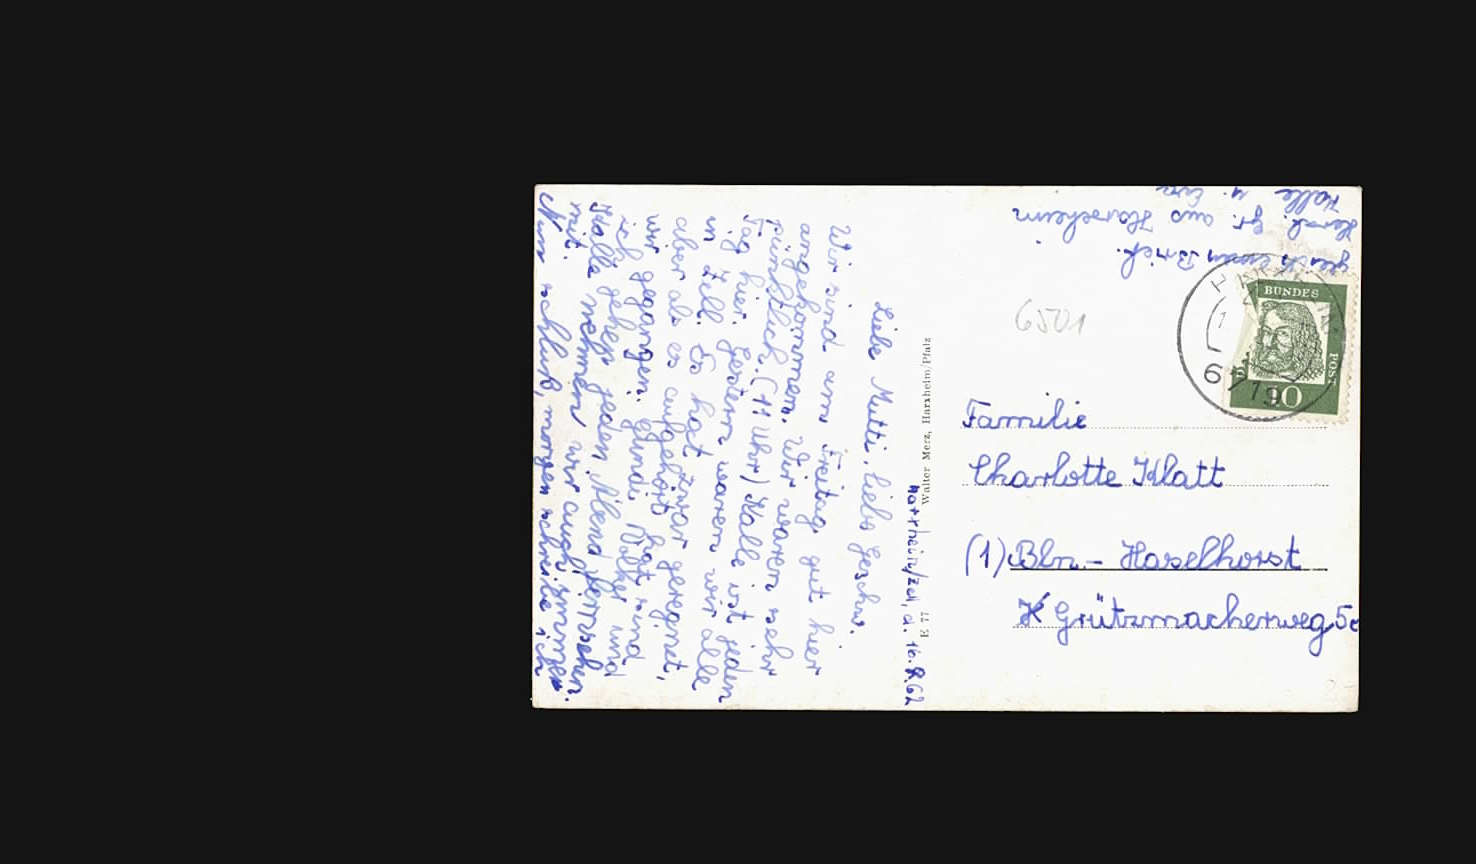 Harxheim/Zell, d. 16.9.62
Liebe Mutti, liebe Geschw.
Wir sind am Freitag gut hier
angekommen. Wir waren sehr
pünktlich. (11 Uhr) Kalle ist jeden
Tag hier. Gestern waren wir alle
in Zell. Es hat zwar geregnet,
aber als es aufgehört hat sind
wir gegangen. Gundi, Volker und
ich
Kalle gehen jeden Abend fernsehen.
mit. nehmen wir auch immer
Nun schluß, morgen schreibe ich
gleich einen Brief.
Herzl. Gr. aus Harxheim
Kalle u. Evi
Walter Merz, Harxheim/Pfalz
E 77
6501
BUNDES
POST
10
Familie
Charlotte Klatt
(1) Bln.- Haselhorst
Grützmacherweg 5c